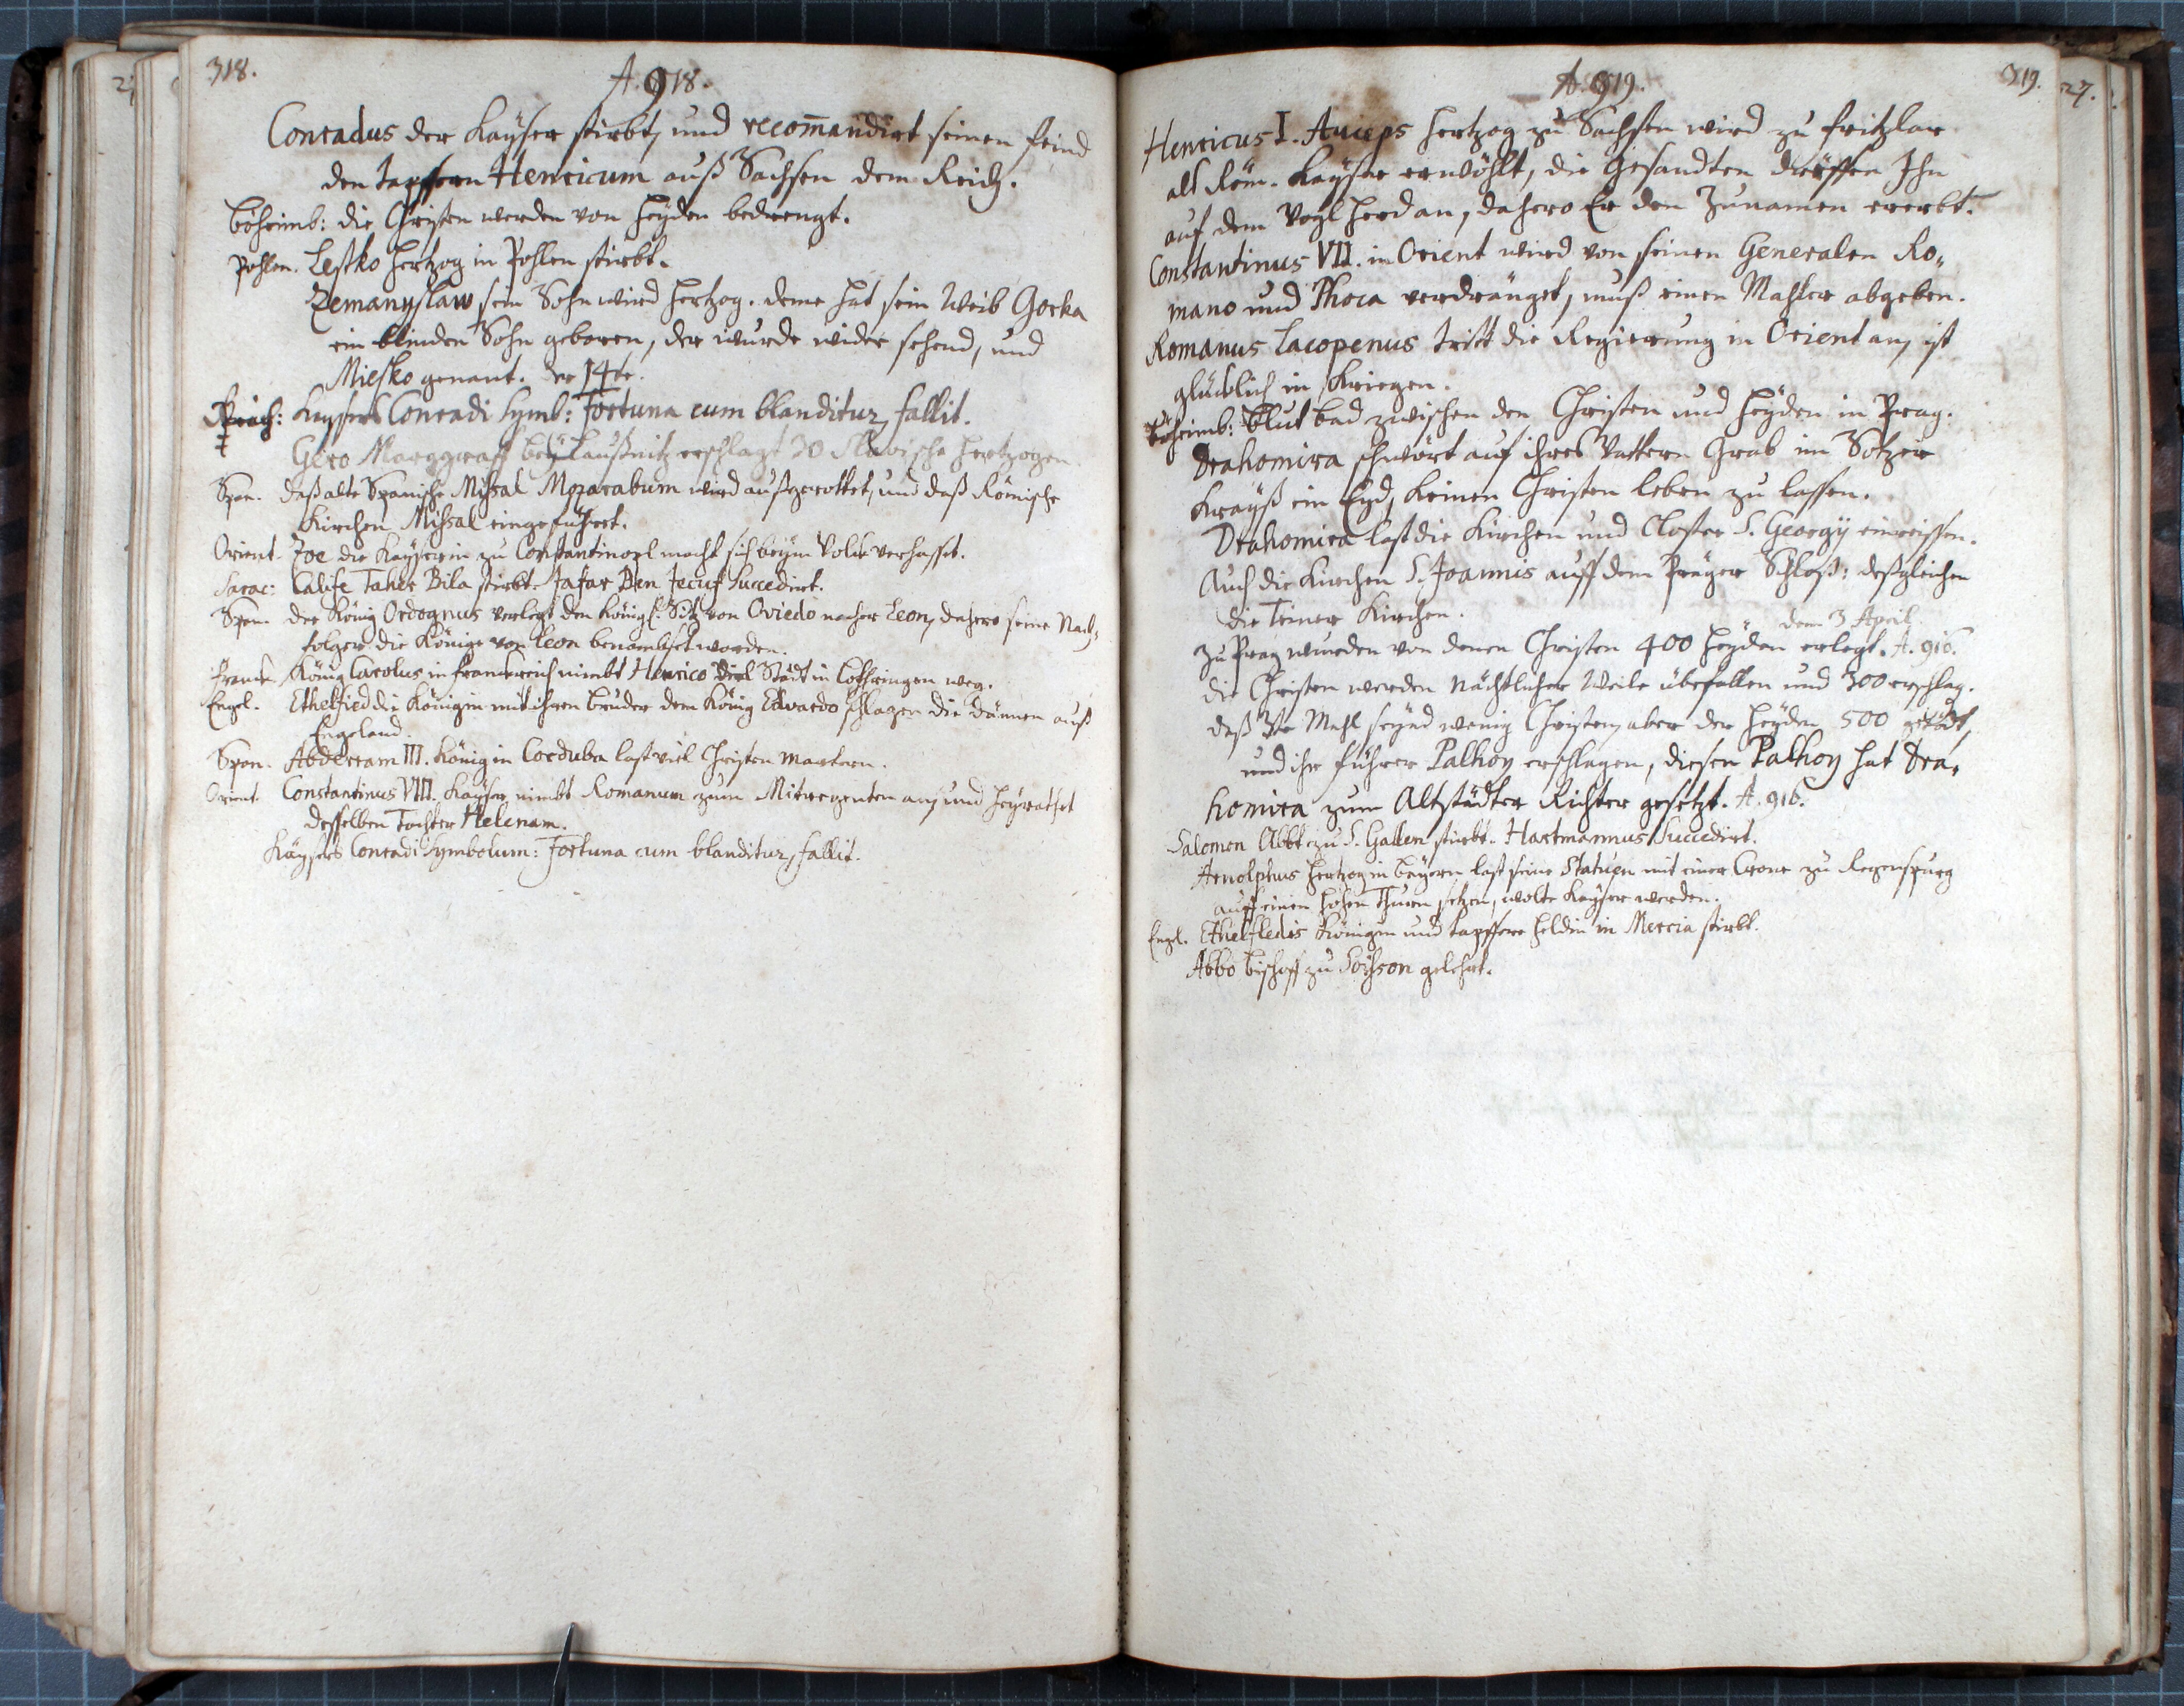 318.
A. 918.
Conradus der Kaÿser stirbt, und recom̄andirt seinen feind
den tapffern Henricum auß Sachsen dem Reich.
Böheimb: die Christen werden von Heÿden bedrengt.
Pohlen. Lestko Hertzog in Pohlen stirbt.
Zemanyslaw sein Sohn wird Hertzog. deme hat sein Weib Gorka
ein blinden Sohn geboren, der wurde wider sehend, und
Miesko genant. der 14te.
Kaysers Conradi Symb: Fortuna cum blanditur, fallit.
Gero Marggraff beÿ Laußnitz erschlagt 30 Slavische Hertzogen.
Span. daß alte Spanische Missal Mozarabum wird außgerottet, und daß Römische
Kirchen Missal eingeführt.
Orient. Zoe die Kaÿserin zu Constantinopl macht sich beÿm Volck verhasset.
Sarac: Calife Taher Bila stirbt. Jafar Ben Jecuf Succedirt.
Span. der König Ordognus verlegt den Königl. Sitz von Oviedo nacher Leon, dahero seine Nach„
folger die Könige von Leon benambset worden.
Franck. König Carolus in Franckreich nimbt Henrico Viel Städt in Lothringen weg.
Engel. Ethelfied die Königin mit ihren Bruder dem König Edvardo schlagen die Dännen auß
Engeland.
Span. Abderram III. König in Corduba last viel Christen martern.
Orient. Constantinus VIII. Kaÿser nimbt Romanum zum Mitregenten an, und heÿrathet
desselben Tochter Helenam.
Kaÿsers Conradi Symbolum: Fortuna cum blanditur, fallit.
A. 919.
319.
27.
Henricus I. Auceps Hertzog zu Sachsen wird zu Fritzlar
als Röm. Kaÿser erwöhlt, die Gesandten dreffen Ihn
auf dem Vogl Herd an, dahero Er den Zunamen ererbt.
Constantinus VII. in Orient wird von seinen Generalen Ro„
mano und Phoca verdränget, muß einen Mahler abgeben.
Romanus Lacopenus tritt die Regierung in Orient an, ist
glücklich in Kriegen.
Böheimb: Blut bad zwischen den Christen und Heÿden in Prag.
Drahomira schwört auf ihres Vattern Grab im Sotzer
Kraÿß ein Eyd, keinen Christen leben zu lassen.
Drahomira last die Kirchen und Closter S. Georgÿ einreissen.
Auch die Kirchen S. Joannis auff dem Präger Schloß: deßgleichen
die Teiner Kirchen.
dem 3 April
Zu Prag wurden von denen Christen 400 Heÿden erlegt. A. 916.
die Christen werden nächtlicher Weile übefallen und 300 erschlag.
daß 3te Mahl seÿnd wenig Christen, aber der Heÿden 500 getödt,
und ihr führer Palhoy erschlagen, diesen Palhoy hat Dra„
homira zum Altstädter Richter gesetzt. A. 916.
Salomon Abbt zu S. Gallen stirbt. Hartmannus Succedirt.
Arnolphus Hertzog in Baÿern last seine Statuen mit einer Crone zu Regenspurg
auff einen hohen Thurn setzen, wolte Kaÿser werden.
Engl. Ethelfledis Königin und tapffere Heldin in Mercia stirbt.
Abbo Bischoff zu Soisson gelehrt.